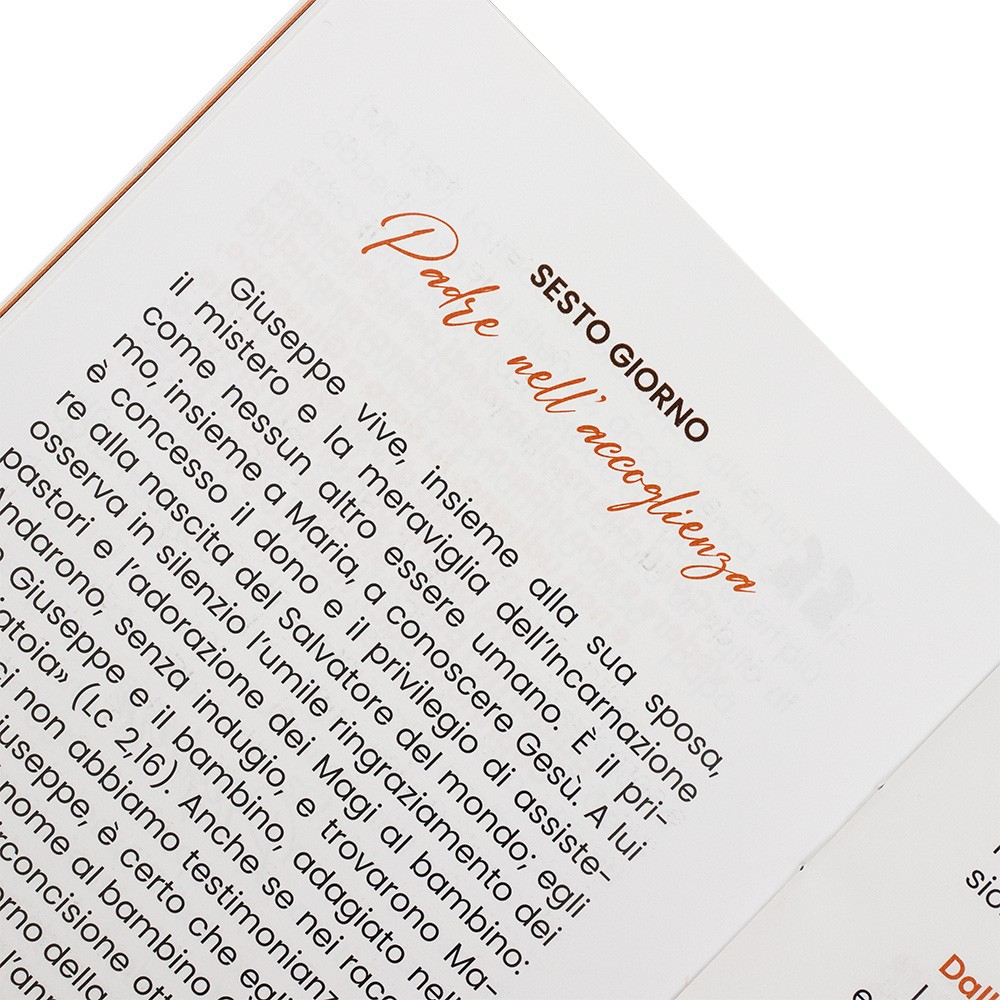 SESTO GIORNO
Padre nell'accoglienza
Giuseppe vive, insieme alla sua sposa,
il mistero e la meraviglia dell'Incarnazione
come nessun altro essere umano. È il pri-
mo, insieme a Maria, a conoscere Gesù. A lui
è concesso il dono e il privilegio di assiste-
re alla nascita del Salvatore del mondo; egli
osserva in silenzio l'umile ringraziamento dei
pastori e l'adorazione dei Magi al bambino:
Andarono, senza indugio, e trovarono Ma-
Giuseppe e il bambino, adagiato nell
atoia» (Lc 2,16). Anche se nei racc
ci non abbiamo testimonianz
iuseppe, è certo che egl
nome al bambino
rconcisione ott
orno della
l'ann
sio
Dall